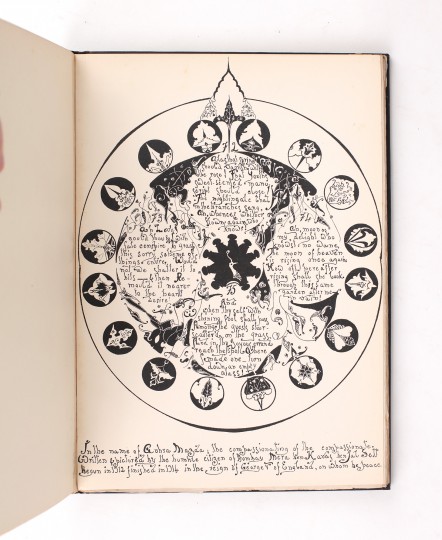 Alas that Spring
should vanish with
the rose! That Youth's
sweet-scented manu
script should close!
The nightingale that
in the branches sang,
Ah, whence, whither
flown again, who
knows!
73
Ah Love!
could thou with
fate conspire to grasp
this sorry scheme of
things entire, would
not we shatter it to
bits - & then Re-
mould it nearer
to the heart's
desire!
74
Ah, moon of
my delight who
knowst no wane,
the moon of heaven
is rising once again
How oft hereafter
rising shall she look
through this same
garden after me
in vain!
75
And
when thyself with
shining foot shall pass
Amongst the guests star-
scattered on the grass,
And in thy joyous errand
reach the spot where
I made one - turn
down an empty
glass!
In the name of Aohra Mazda, the compassionating of the compassionate
Written & pictured by the humble citizen of Bombay Mera Ben Kavas Sett
begun in 1912 finished in 1914 in the reign of George V of England, on whom be peace